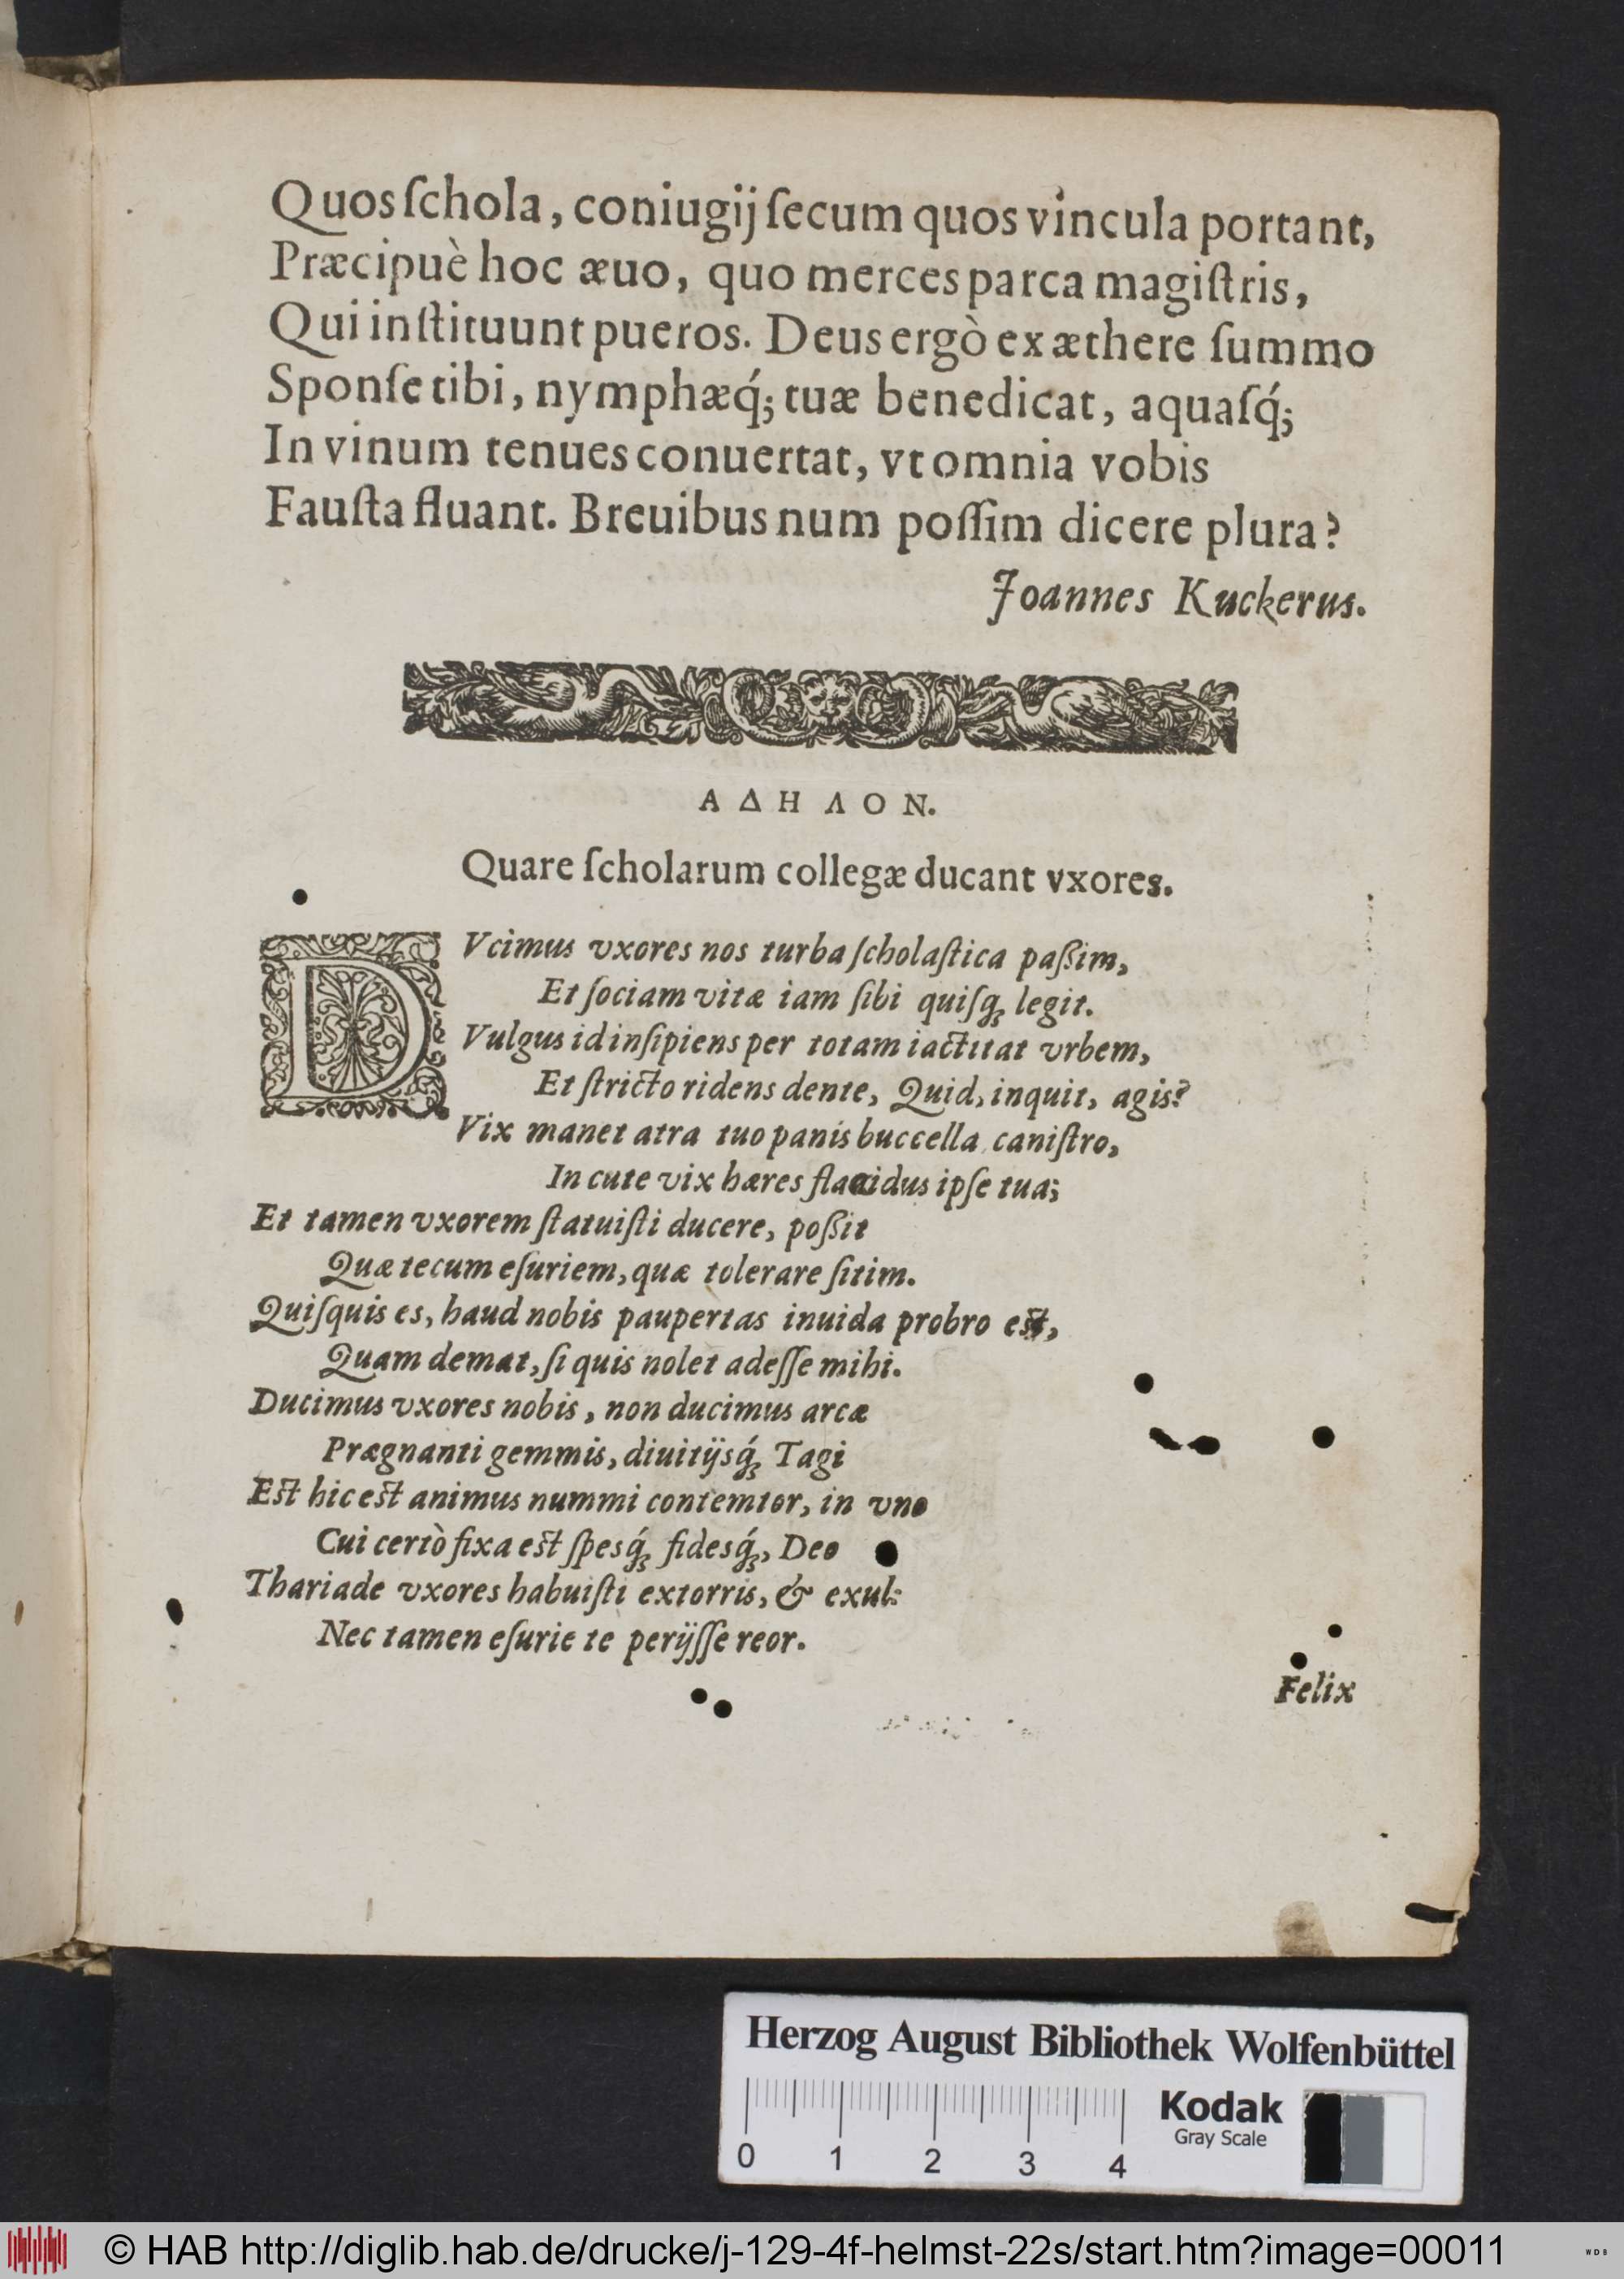 Quos ſchola, coniugij ſecum quos vincula portant,
Præcipuè hoc æuo, quo merces parca magiſtris,
Qui inſtituunt pueros. Deus ergò ex æthere ſummo
Sponſe tibi, nymphæq́; tuæ benedicat, aquaſq́;
In vinum tenues conuertat, vt omnia vobis
Fauſta fluant. Breuibus num poſſim dicere plura?
Joannes Kuckerus.
ΑΔΗΛΟΝ.
Quare ſcholarum collegæ ducant vxores.
DVcimus vxores nos turba ſcholaſtica paßim,
Et ſociam vitæ iam ſibi quiſq; legit.
Vulgus id inſipiens per totam iactitat vrbem,
Et ſtricto ridens dente, Quid, inquit, agis?
Vix manet atra tuo panis buccella caniſtro,
In cute vix hæres flaccidus ipſe tua;
Et tamen vxorem ſtatuiſti ducere, poßit
Quæ tecum eſuriem, quæ tolerare ſitim.
Quiſquis es, haud nobis paupertas inuida probro est,
Quam demat, ſi quis nolet adeſſe mihi.
Ducimus vxores nobis, non ducimus arcæ
Prægnanti gemmis, diuitijsq́; Tagi
Est hic est animus nummi contemtor, in vno
Cui certò fixa est ſpesq́; fidesq́;, Deo
Thariade vxores habuiſti extorris, & exul:
Nec tamen eſurie te perijſſe reor.
Felix
Herzog August Bibliothek Wolfenbüttel
0 1 2 3 4
Kodak
Gray Scale
© HAB http://diglib.hab.de/drucke/j-129-4f-helmst-22s/start.htm?image=00011
WDB